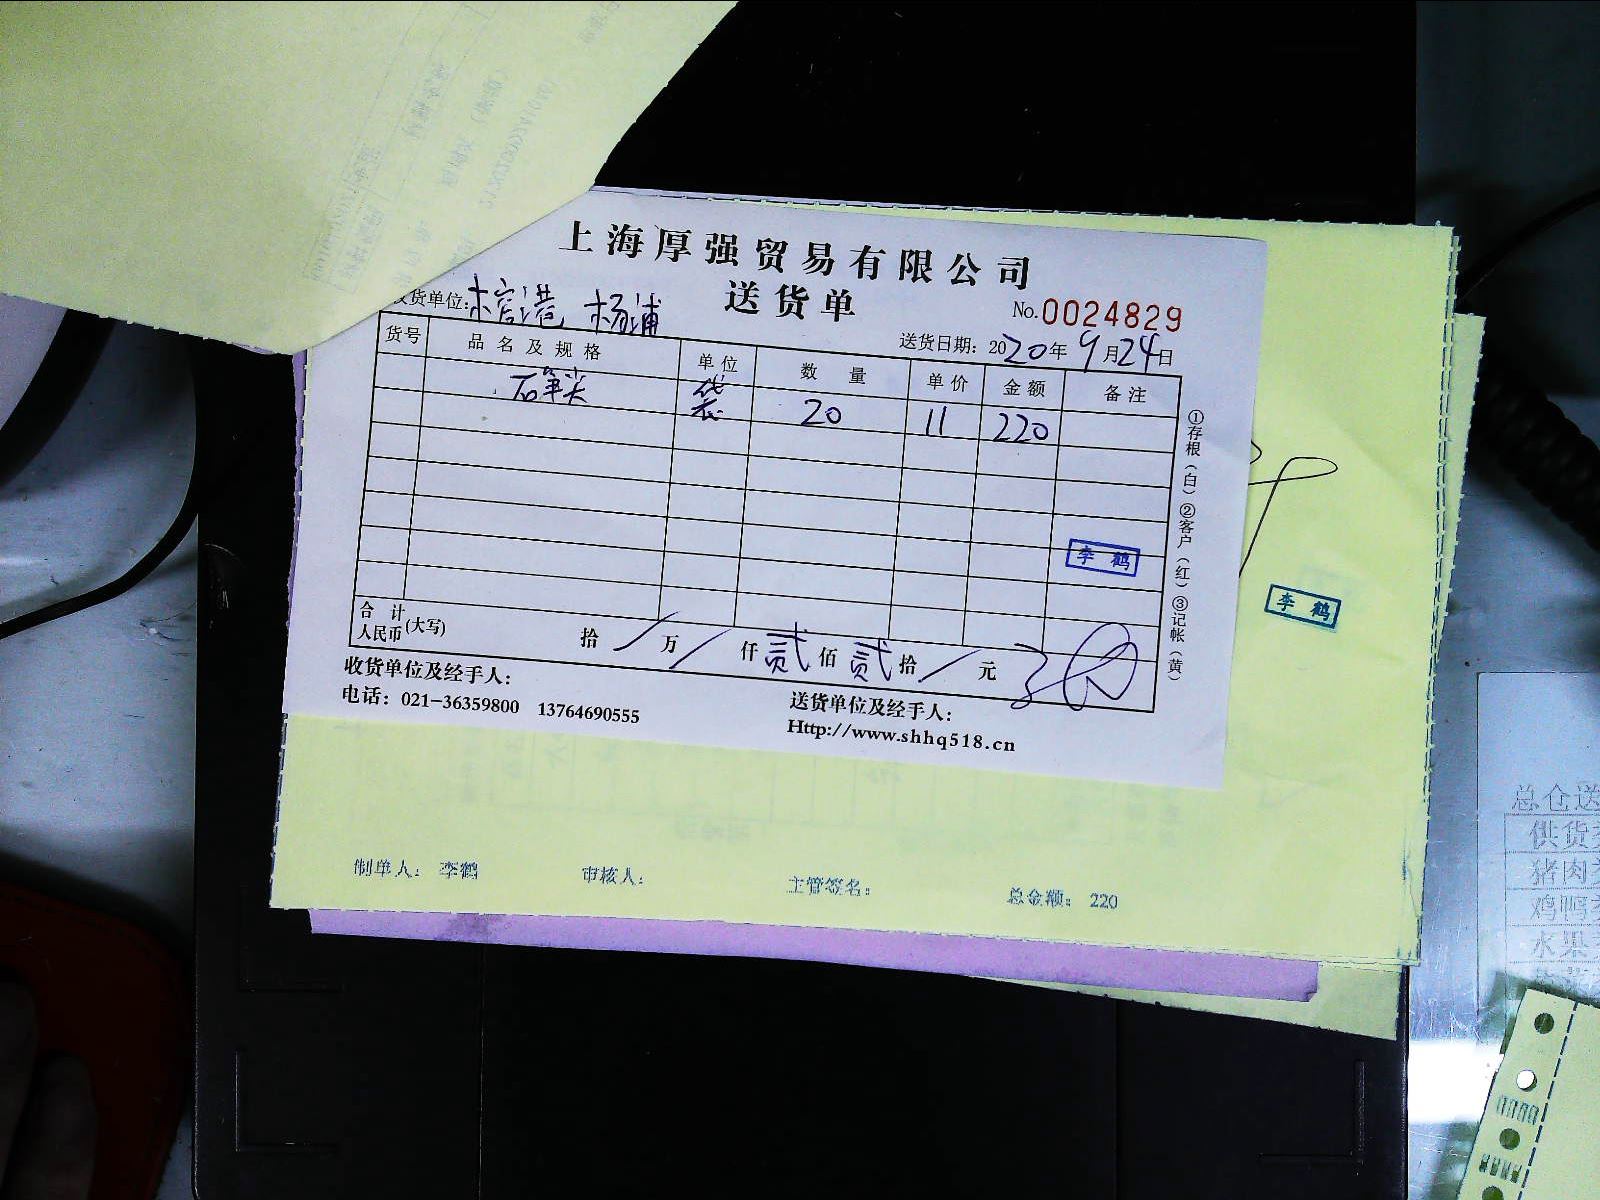 上海厚强贸易有限公司
送货单
No.0024829
货单位: 港 杨浦
送货日期: 2020年9月24日
货号 品名及规格 单位 数量 单价 金额 备注
石笋尖 袋 20 11 220
李鹤
合计人民币(大写) 拾 / 万 / 仟 贰 佰 贰 拾 / 元
收货单位及经手人:
电话: 021-36359800 13764690555
送货单位及经手人:
Http://www.shhq518.cn
①存根(白)②客户(红)③记帐(黄)
李鹤
制单人: 李鹤 审核人: 主管签名: 总金额: 220
总仓送
供货
猪肉
鸡鸭
水果